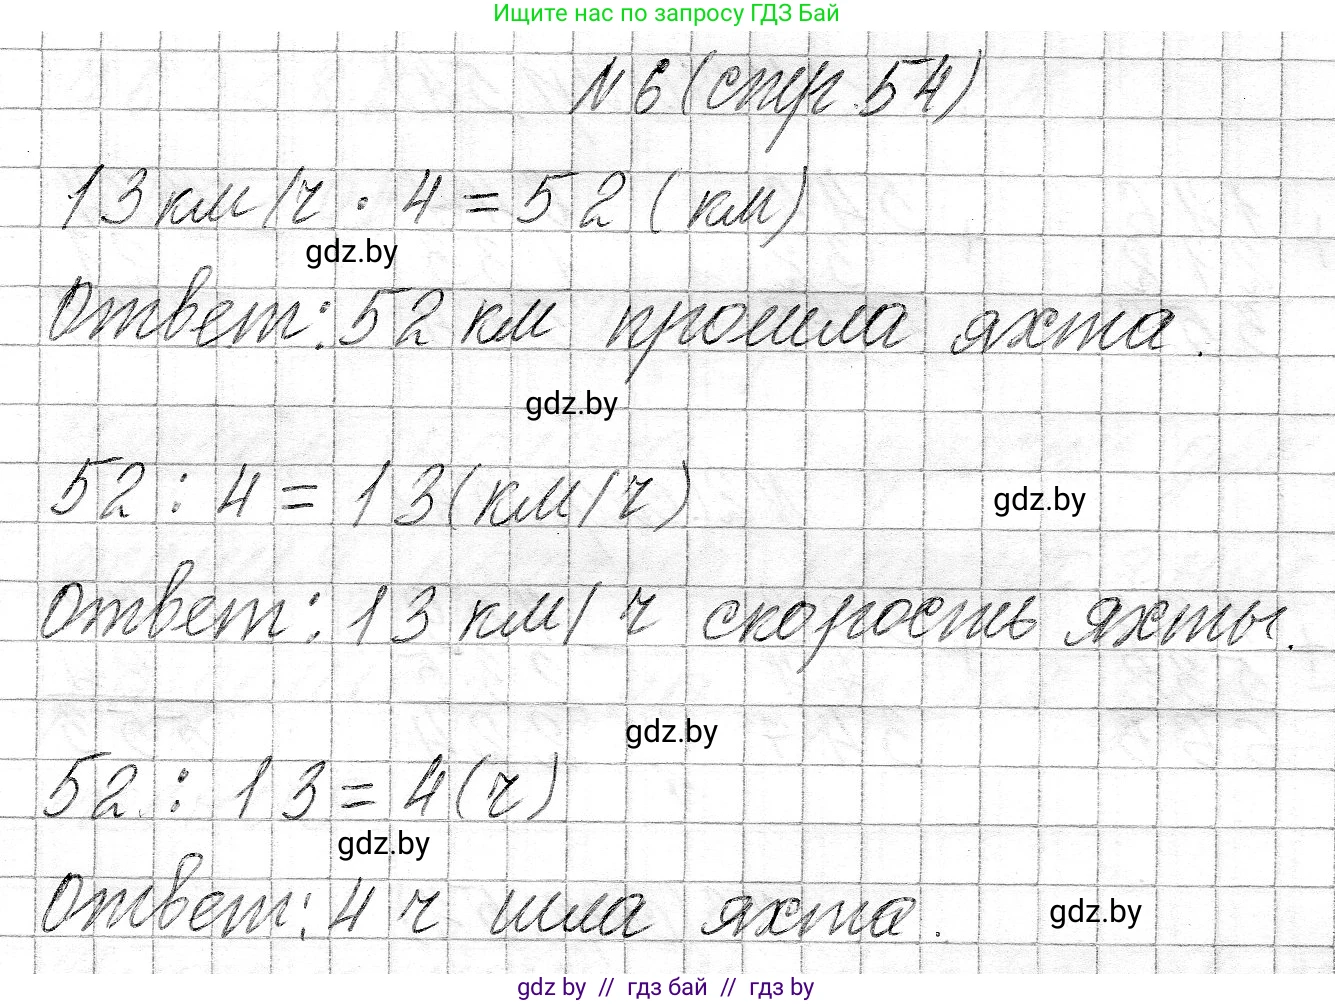 Ищите нас по запросу ГДЗ Бай
N 6 (стр. 54)
13 км/ч · 4 = 52 (км)
gdz.by
Ответ: 52 км прошла яхта.
gdz.by
52 : 4 = 13 (км/ч)
gdz.by
Ответ: 13 км/ч скорость яхты.
gdz.by
52 : 13 = 4 (ч)
gdz.by
Ответ: 4 ч шла яхта.
gdz.by
gdz by // гдз бай // гдз by